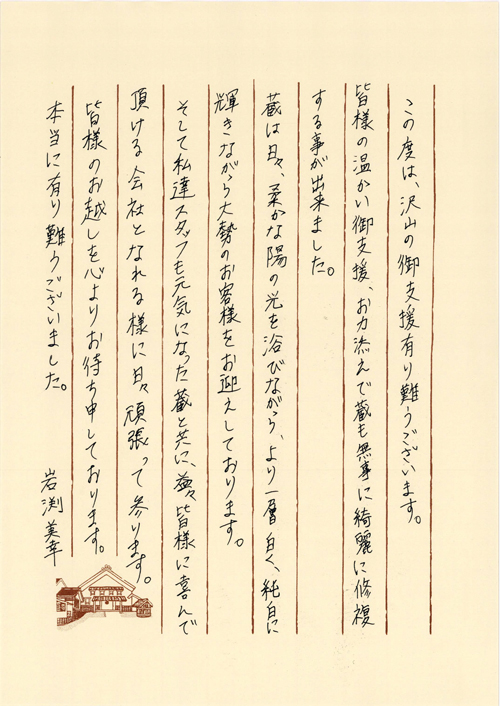 この度は、沢山の御支援有り難うございます。
皆様の温かい御支援、お力添えで蔵も無事に綺麗に修複
する事が出来ました。
蔵は日々、柔かな陽の光を浴びながら、より一層白く、純白に
輝きながら大勢のお客様をお迎えしております。
そして私達スタッフも元気になった蔵と共に、益々皆様に喜んで
頂ける会社となれる様に日々頑張って参ります。
皆様のお越しを心よりお待ち申しております。
本当に有り難うございました。
岩渕美幸